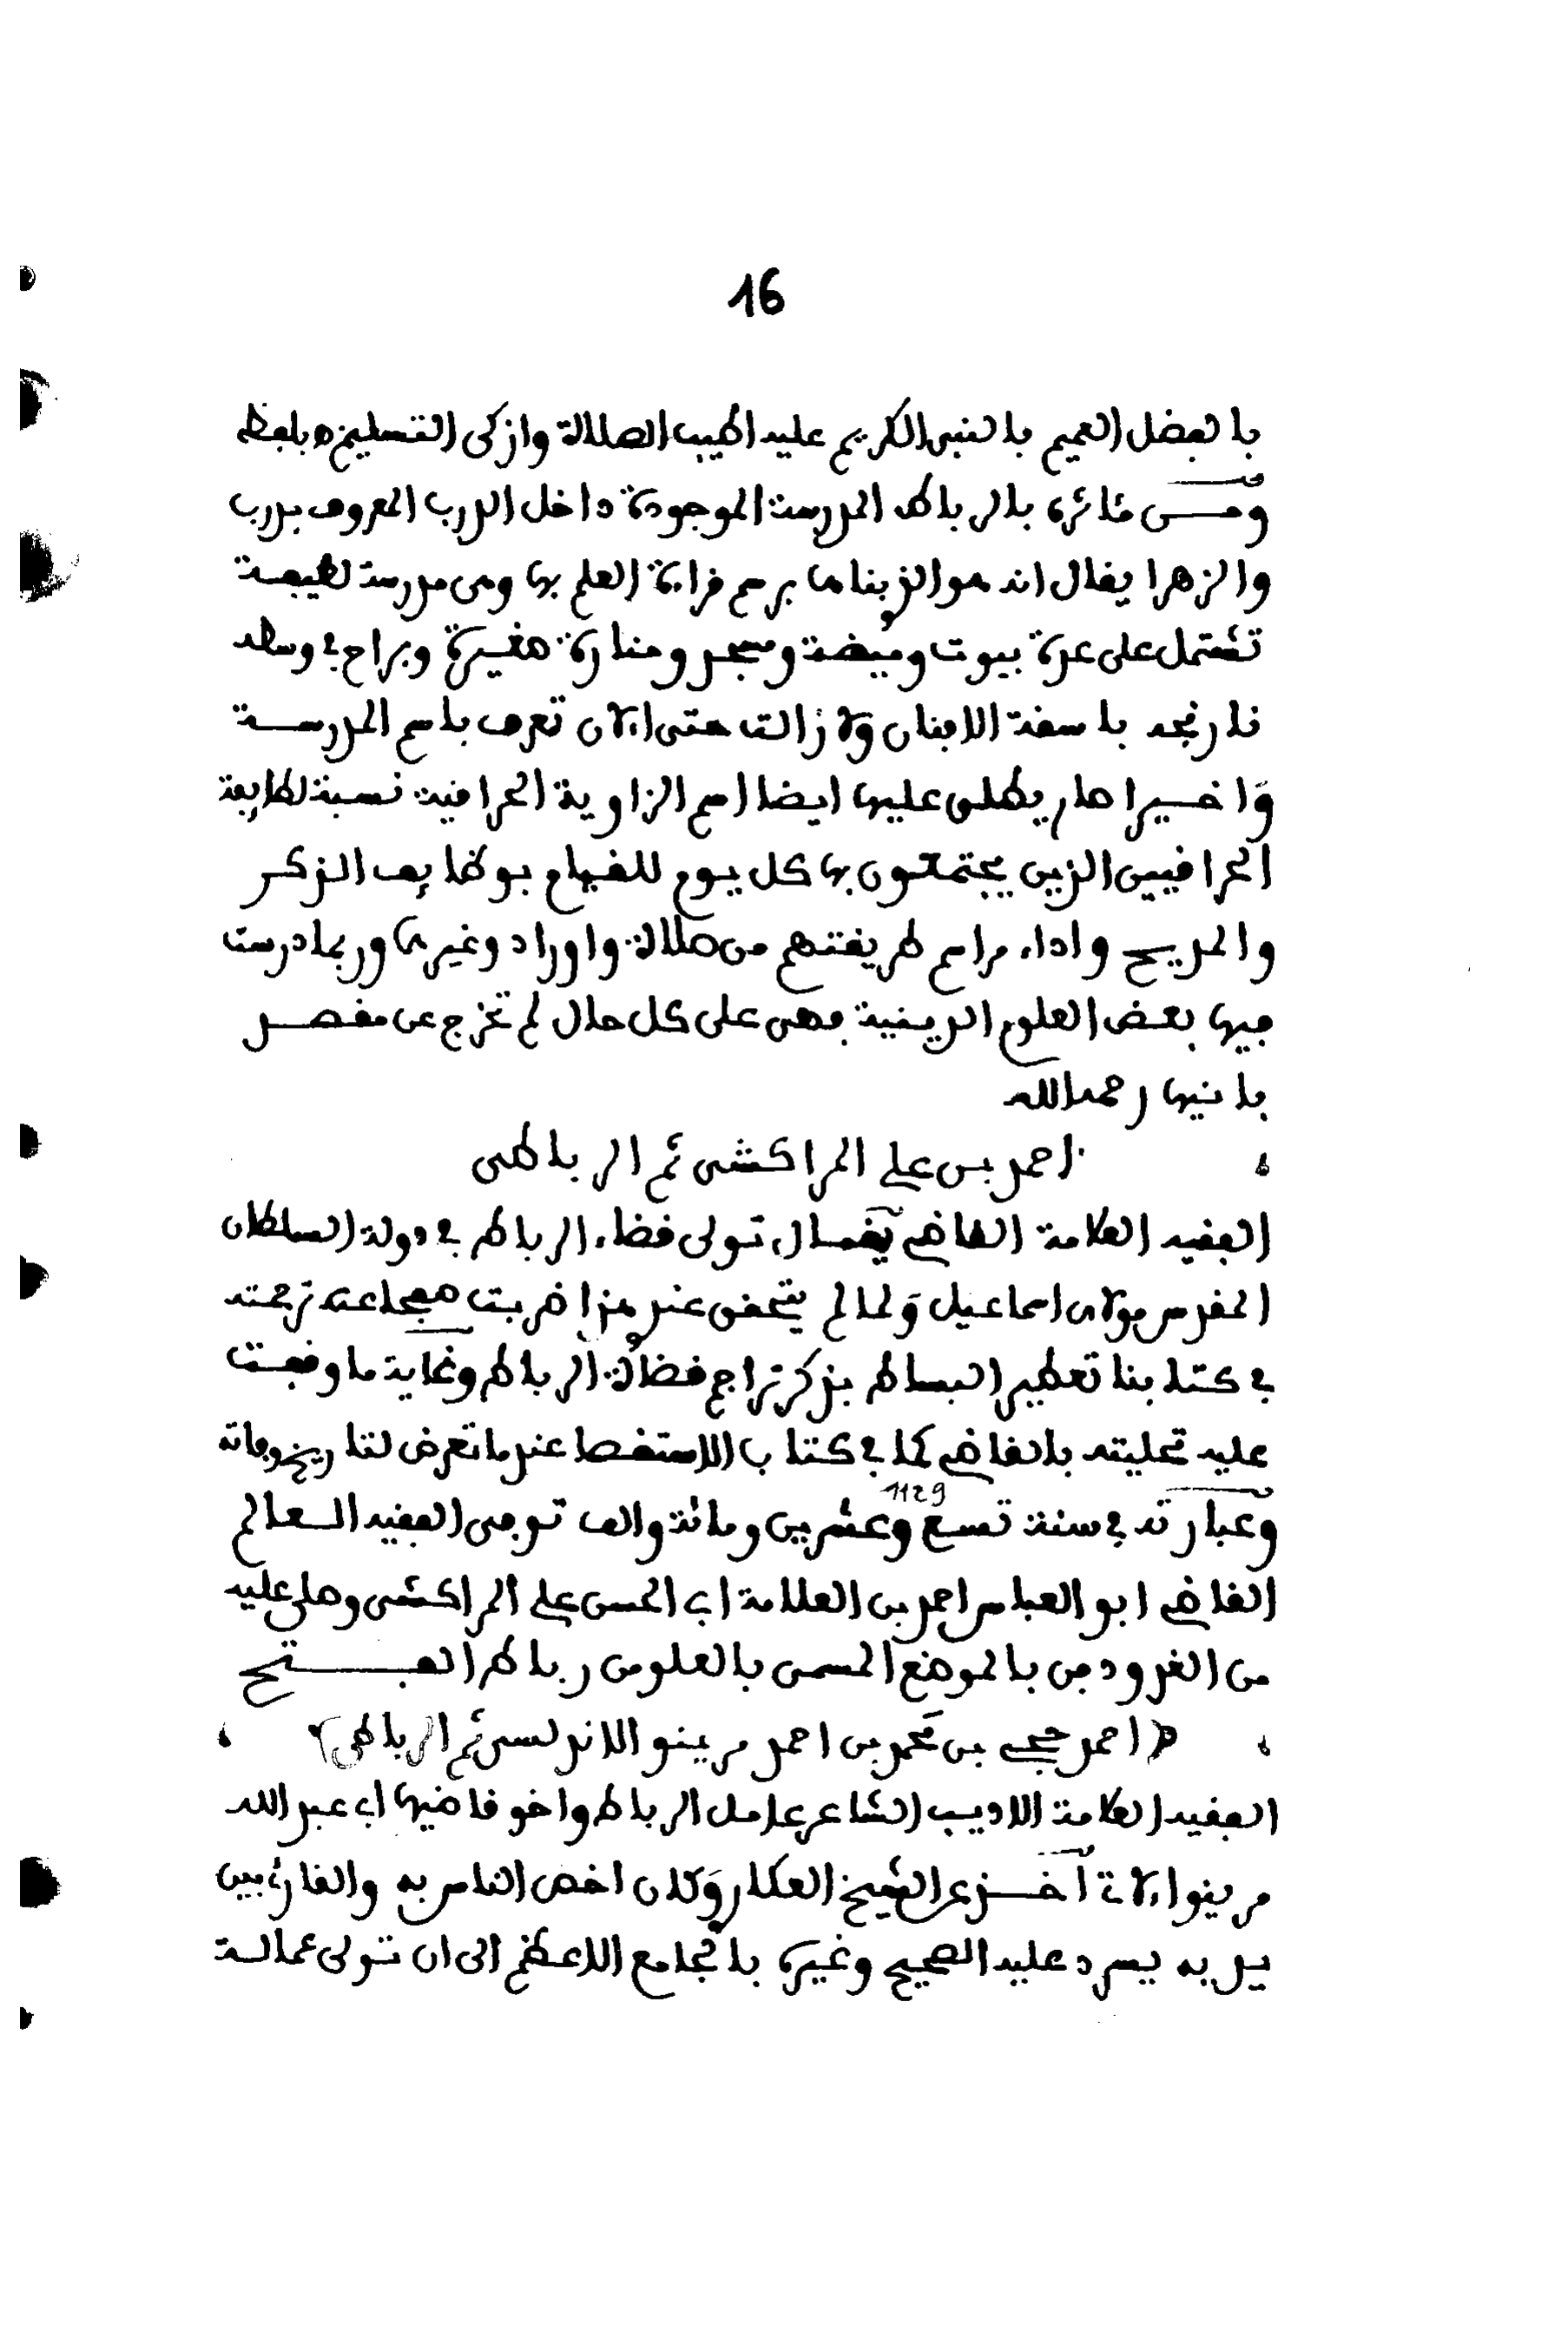 16
بالفضل العميم بالنبي الكريم عليه اطيب الصلاة وازكى التسليم ه بلفظه
ومن مئاثره بالرباط المدرسة الموجودة داخل الدرب المعروف بدرب
والزهرا يقال انه هو الذي بناها برسم قراءة العلم بها وهي مدرسة لطيفة
تشتمل على عدة بيوت وميضة ومسجد ومنارة صغيرة وبراح في وسطه
نارنجه باسقة الافنان ولا زالت حتى الان تعرف باسم المدرسة
واخيرا صار يطلق عليها ايضا اسم الزاوية الحراقية نسبة لطايفة
الحراقيين الذين يجتمعون بها كل يوم للقيام بوظايف الذكر
والمديح واداء مراسم طريقتهم من صلاة واوراد وغيرها وربما درست
فيها بعض العلوم الدينية فهي على كل حال لم تخرج عن مقصد
بانيها رحمه الله
احمد بن علي المراكشي ثم الرباطي
الفقيه العلامة القاضي يقال تولى قضاء الرباط في دولة السلطان
المقدس مولاي اسماعيل ولما لم يتحقق عندي هذا ضربت صفحا عن ترجمته
في كتابنا تعطير البساط بذكر تراجم قضاة الرباط وغاية ما وقفت
عليه تحليته بالقاضي كما في كتاب الاستقصا عند ما تعرض لتاريخ وفاته
وعبارته في سنة تسع وعشرين ومائة والف توفي الفقيه العالم
1129
القاضي ابو العباس احمد بن العلامة ابي الحسن علي المراكشي وصلي عليه
من الغد ودفن بالموضع المسمى بالعلو من رباط الفتح
(احمد حجي بن محمد بن احمد مرينو الاندلسي ثم الرباطي)
الفقيه العلامة الاديب الشاعر عامل الرباط واخو قاضيها ابي عبد الله
مرينو الاتي اخذ عن الشيخ العكاري وكان اخص الناس به والقارئ بين
يديه يسرد عليه الصحيح وغيره بالجامع الاعظم الى ان تولى عمالة